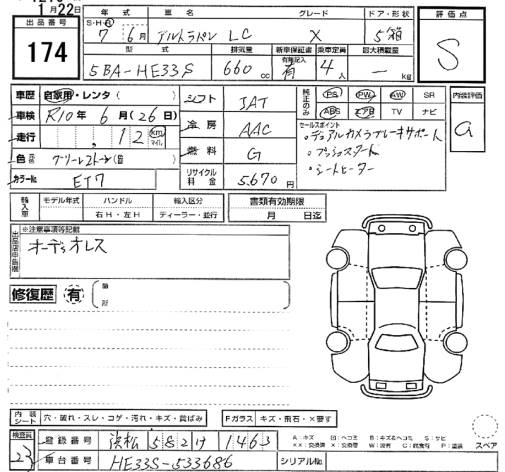 1月22日
出品番号
174
年式 車名 グレード ドア・形状
S・H・R 7年 6月 アルトラパン LC X 5箱
型式 排気量 新車保証書 乗車定員 最大積載量
5BA-HE33S 660cc 有 4人 — kg
評価点
S
車歴 自家用・レンタ(
車検 R10年 6月(26日)
走行 , 12 km マイル
色 元色 グリーン2トーン(
カラーNo. ET7
シフト IAT
冷房 AAC
燃料 G
リサイクル料金 5,670円
純正のみ PS PW AW SR
ABS エアB TV ナビ
セールスポイント
・デュアルカメラブレーキサポート
・プッシュスタート
・シートヒーター
内装評価
a
輸入車 モデル年式 ハンドル 輸入区分
年 右H・左H ディーラー・並行
書類有効期限
月 日迄
※注意事項等記載
オーディオレス
修復歴 有 (箇所
内装シート 穴・破れ・スレ・コゲ・汚れ・キズ・黄ばみ
Fガラス キズ・飛石・×要す
スペア
検査員
23
登録番号 浜松 582 け 1463
A:キズ U:ヘコミ B:キズ&ヘコミ S:サビ
車台番号 HE33S-533686
シリアルNo.